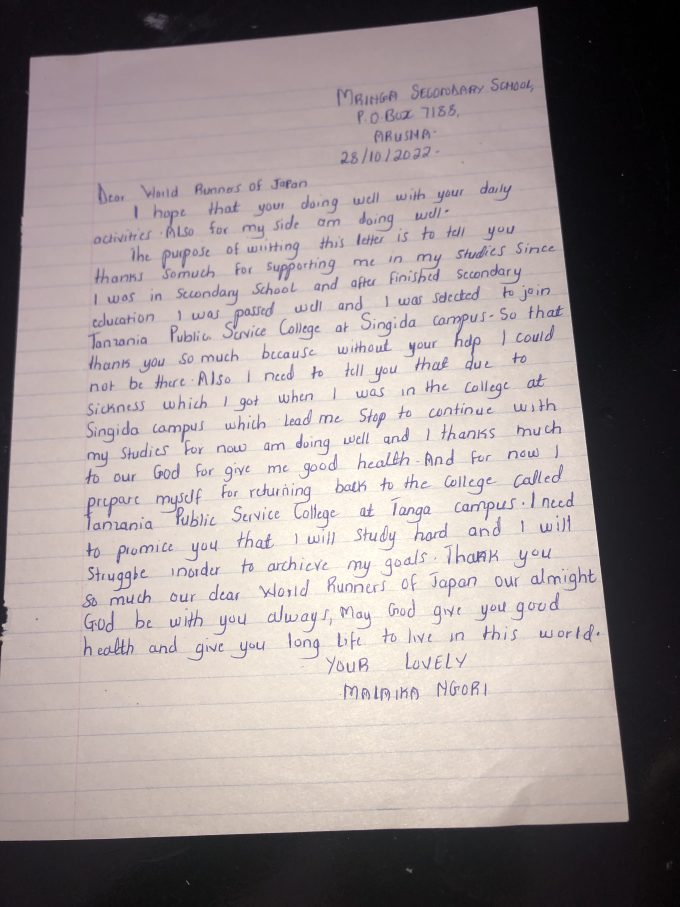 MRINGA SECONDARY SCHOOL,
P.O.BOX 7188,
ARUSHA.
28/10/2022.
Dear World Runners of Japan
I hope that your doing well with your daily
activities. Also for my side am doing well.
The purpose of writting this letter is to tell you
thanks somuch for supporting me in my studies since
I was in secondary school and after finished secondary
education I was passed well and I was selected to join
Tanzania Public Service College at Singida campus. So that
thank you so much because without your help I could
not be there. Also I need to tell you that due to
sickness which I got when I was in the college at
Singida campus which lead me stop to continue with
my studies for now am doing well and I thanks much
to our God for give me good health. And for now I
prepare myself for returning back to the college called
Tanzania Public Service College at Tanga campus. I need
to promice you that I will study hard and I will
struggle inorder to archieve my goals. Thank you
so much our dear World Runners of Japan our almight
God be with you always, May God give you good
health and give you long life to live in this world.
YOUR LOVELY
MALAIKA NGORI